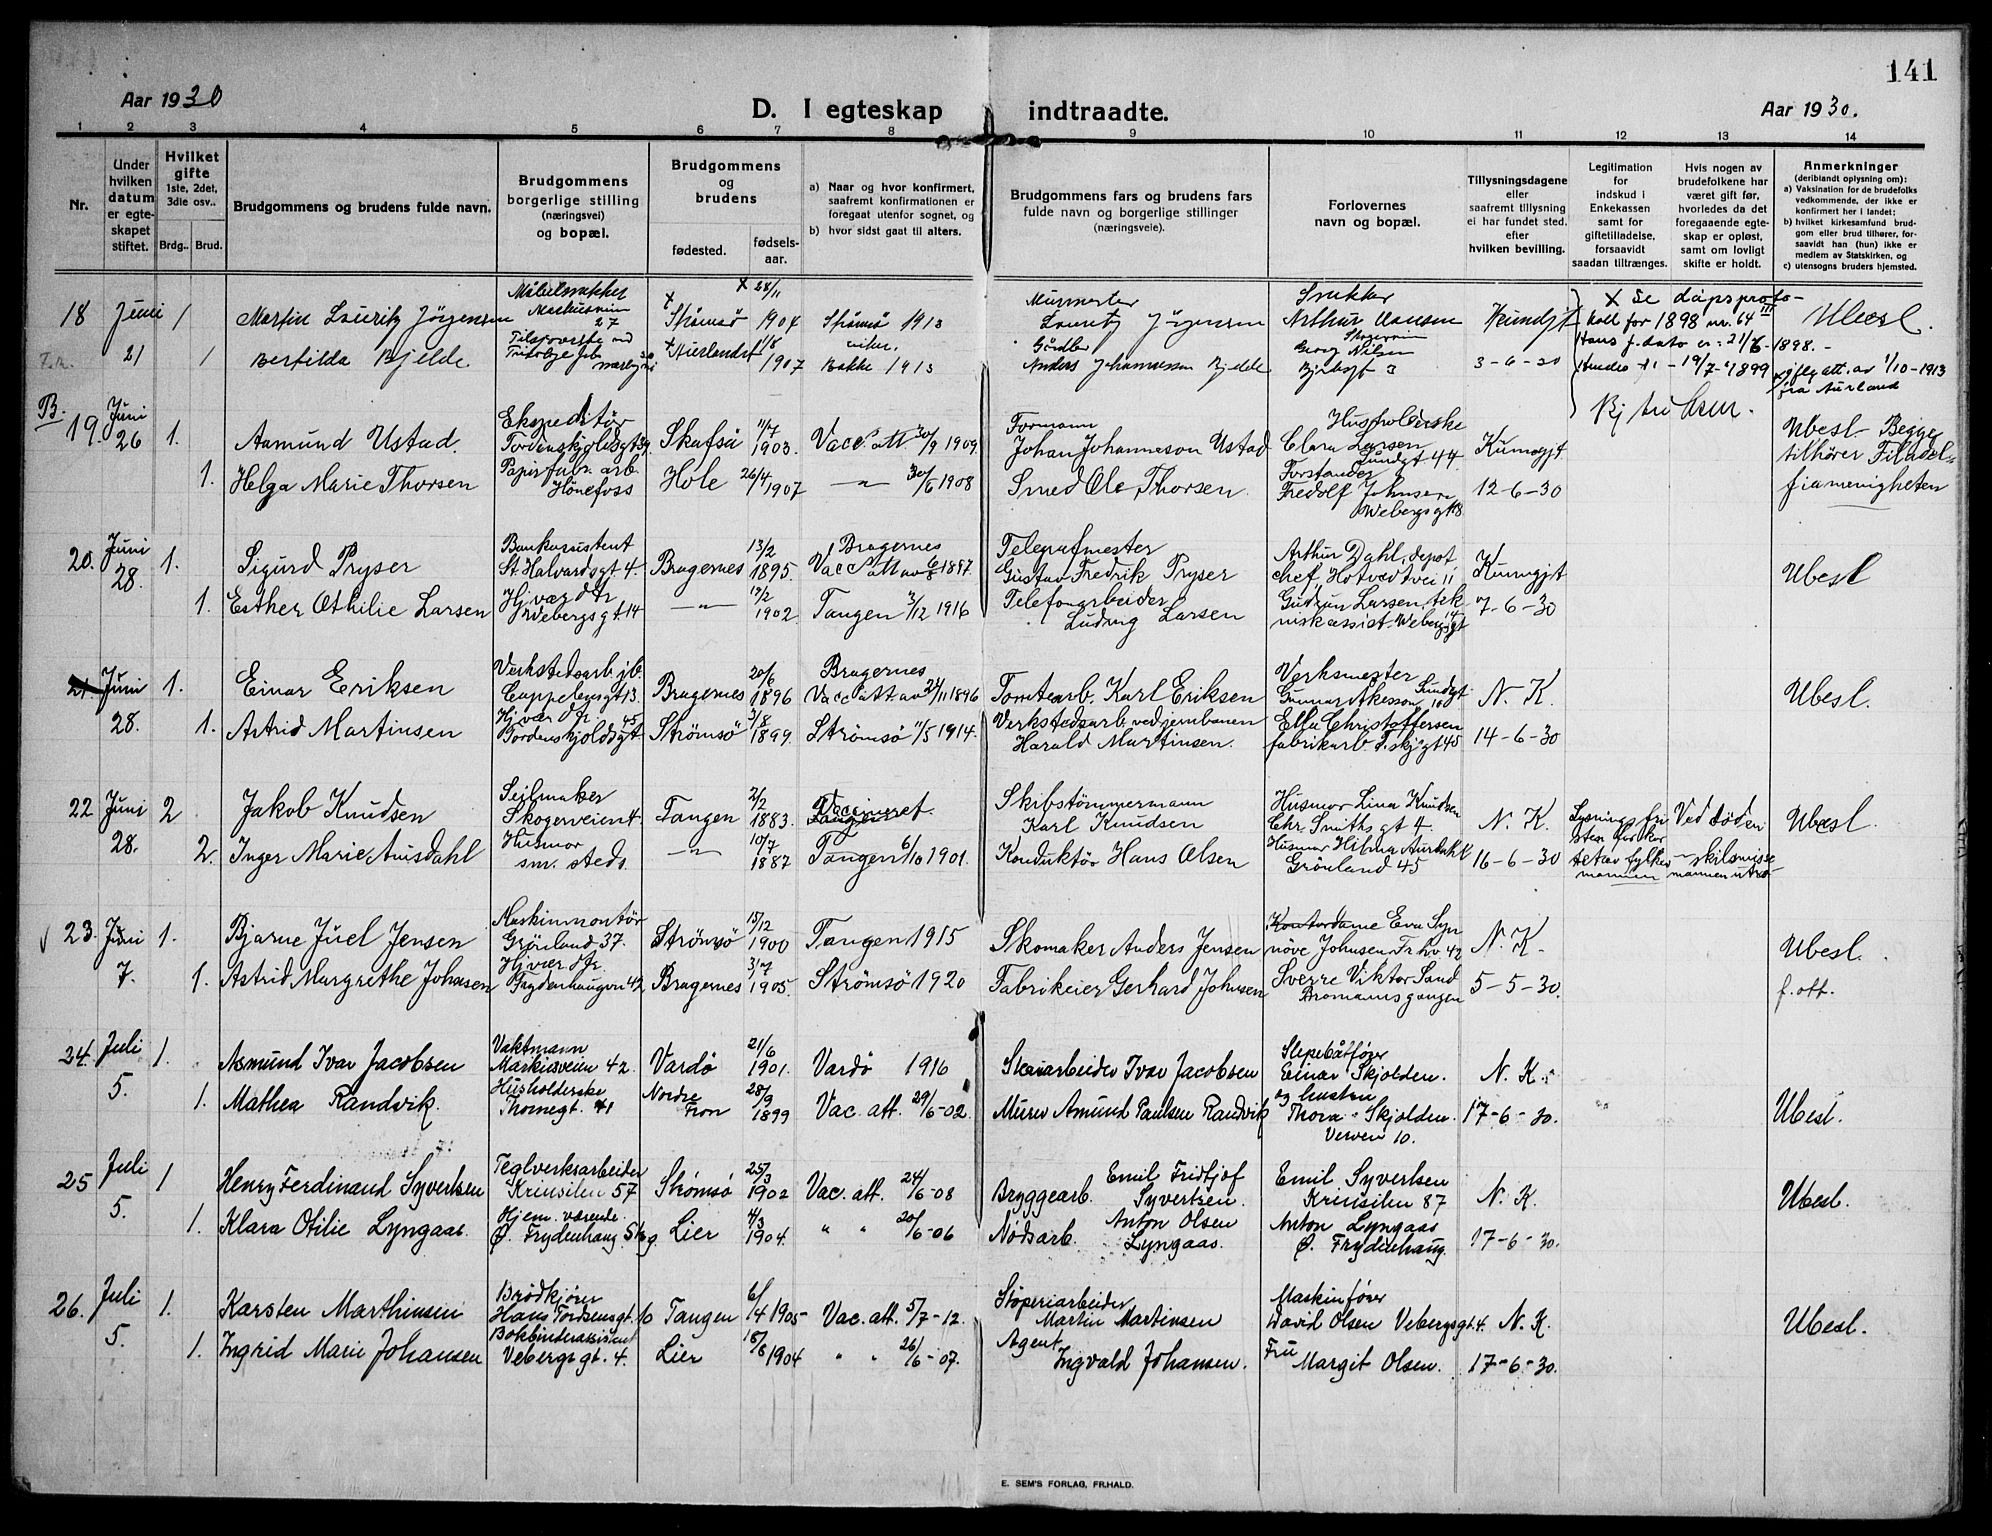 141
Aar 1930
D. I egteskap indtraadte.
Aar 1930.
1 2 3 4 5 6 7 8 9 10 11 12 13 14
Nr.
Under hvilken datum er egteskapet stiftet.
Hvilket gifte 1ste, 2det, 3die osv..
Brdg.. Brud.
Brudgommens og brudens fulde navn.
Brudgommens borgerlige stilling (næringsvei) og bopæl.
Brudgommens og brudens
fødested. fødsels-aar.
a) Naar og hvor konfirmert, saafremt konfirmationen er foregaat utenfor sognet, og
b) hvor sidst gaat til alters.
Brudgommens fars og brudens fars fulde navn og borgerlige stillinger (næringsveie).
Forlovernes navn og bopæl.
Tillysningsdagene eller saafremt tillysning ei har fundet sted. efter hvilken bevilling.
Legitimation for indskud i Enkekassen samt for giftetilladelse, forsaavidt saadan tiltrænges.
Hvis nogen av brudefolkene har været gift før, hvorledes da det foregaaende egteskap er opløst, samt om lovligt skifte er holdt.
Anmerkninger (deriblandt oplysning om):
a) Vaksination for de brudefolks vedkommende, der ikke er konfirmert her i landet;
b) hvilket kirkesamfund brudgom eller brud tilhører, forsaavidt han (hun) ikke er medlem av Statskirken, og
c) utensogns bruders hjemsted.
18 Juni 1 Martin Lauritz Jörgensen 27 Strömsö 1904 Strömsö 1913 Murmester Lauritz Jörgensen Snekker Arthur Hansen X Se dåpsproto- Ubesl.
koll for 1898 nr. 64
Hans f. dato er = 21/6 - 1898. -
21 1 Bertilda Bjelde Aurland 1907 Bakke 1913 Gårdbr Anders Johannesson Bjelde Georg Nilsen 3-6-30 Hendes 19/7-1899 att. av 1/10-1913
fra Aurland
B. 19. Juni 26 1. Aamund Ustad. Ekspeditør Tordenskjoldsgt 39 Skafså 11/7 1903. Vacc att 30/9 1909. Formann Johan Johanneson Ustad Husholderske Clara Larsen Lundgt 44. Kunngjt Ubesl. Begge
tilhører Filadel-
fiamenigheten
1. Helga Marie Thorsen Papirfabr. arb. Hönefoss Hole 26/4 1907 - " - 30/6 1908 Smed Ole Thorsen Forstander Fredolf Johnsen Webergsgt 8 12-6-30
20. Juni 28. 1. Sigurd Pryser Bankassistent St. Halvardsgt 4. Bragernes 13/2 1895. Bragernes Vacc att av 6/8 1897. Telegrafmester Gustav Fredrik Pryser Arthur Dahl, depot chef, Hotvedtvei 11 Kunngjt Ubesl
1. Esther Othilie Larsen Hj. vær. dtr Webergsgt. 14 - " - 1902. Tangen 3/12 1916 Telefonarbeider Ludvig Larsen Gudrun Larsen, tekniskassist. Webergsgt 14 7-6-30
21. Juni 28. 1. Einar Eriksen Verkstedsarb. jb. Cappelensgt 13. Bragernes 20/6 1896 Bragernes Vacc att av 24/11 1896 Tomtearb. Karl Eriksen Verksmester Gunnar Åkesson Lundgt 10 N. K. Ubesl.
1. Astrid Martinsen Hj. vær. dtr Tordenskjoldsgt 45 Strömsö 3/8 1899. Strömsö 11/5 1914. Verkstedsarb. ved jernbanen Harald Martinsen. Ella Christoffersen fabrikarb T.skj.gt 45 14-6-30
22 Juni 28. 2 Jakob Knudsen Seilmaker Skogerveien 4. Tangen 2/2 1883. Vaccineret. Skibstømmermann Karl Knudsen Husmor Lina Knudsen Chr. Smiths gt 4. N. K. Ved döden Ubesl.
2. Inger Marie Amsdahl Husmor sm. steds. - " - 10/7 1887 Tangen 6/10 1901. Konduktör Hans Olsen Husmor Hilma Aurdahl Grönland 45 16-6-30 skilsmisse
23. Juni 7. 1. Bjarne Juel Jensen Maskinmontør Grönland 37. Strömsö 15/12 1900 Tangen 1915 Skomaker Anders Jensen Kontordame Eva Synnöve Johnsen Fr.hv 42 N. K. Ubesl.
1. Astrid Margrethe Johnsen Hj vær dtr. Frydenhaugen 42 Bragernes 3/7 1905. Strömsö 1920 Fabrikeier Gerhard Johnsen Sverre Viktor Sand Bromansgangen 5-5-30. f. att.
24. Juli 5. 1. Asmund Ivar Jacobsen Vaktmann Markusveien 42. Vardö 21/6 1901. Vardö 1916 Ivar Jacobsen Slepebåtfører Einar Skjolden. N. K.
1. Mathea Randvik. Husholderske Thornegt. 41 Nordre Fron 28/9 1899 Vac. att. 29/6-02. Murer Amund Paulsen Randvik og hustru Thora Skjolden. Verven 10. 17-6-30. Ubesl.
25 Juli 5. 1 Henry Ferdinand Syvertsen Teglverksarbeider Krinsilen 57 Strömsö 25/3 1902 Vac. att. 24/6-08 Bryggearb. Emil Fridtjof Syvertsen. Emil Syvertsen Krinsilen 87 N. K. Ubesl.
1. Klara Otilie Lyngaas. Hjem. værende. Ø. Frydenhaug. Lier 4/3 1904. " " 20/6-06 Nødsarb. Anton Olsen Lyngaas. Anton Lyngaas Ø. Frydenhaug. 17-6-30.
26. Juli 5. 1. Karsten Marthinsen Brödkjörer Hans Tordsensgt. 10 Tangen 6/4 1905 Vac. att. 5/7-12. Støperiarbeider Martin Martinsen Maskinfører David Olsen Vebergsgt. 4. N. K. Ubesl.
1. Ingrid Marie Johansen Bokbinderassistent Vebergsgt. 4. Lier 18/8 1904 " " 26/6-07. Agent Ingvald Johansen. Fru Margit Olsen. 17-6-30.
E. SEM'S FORLAG, FR.HALD.